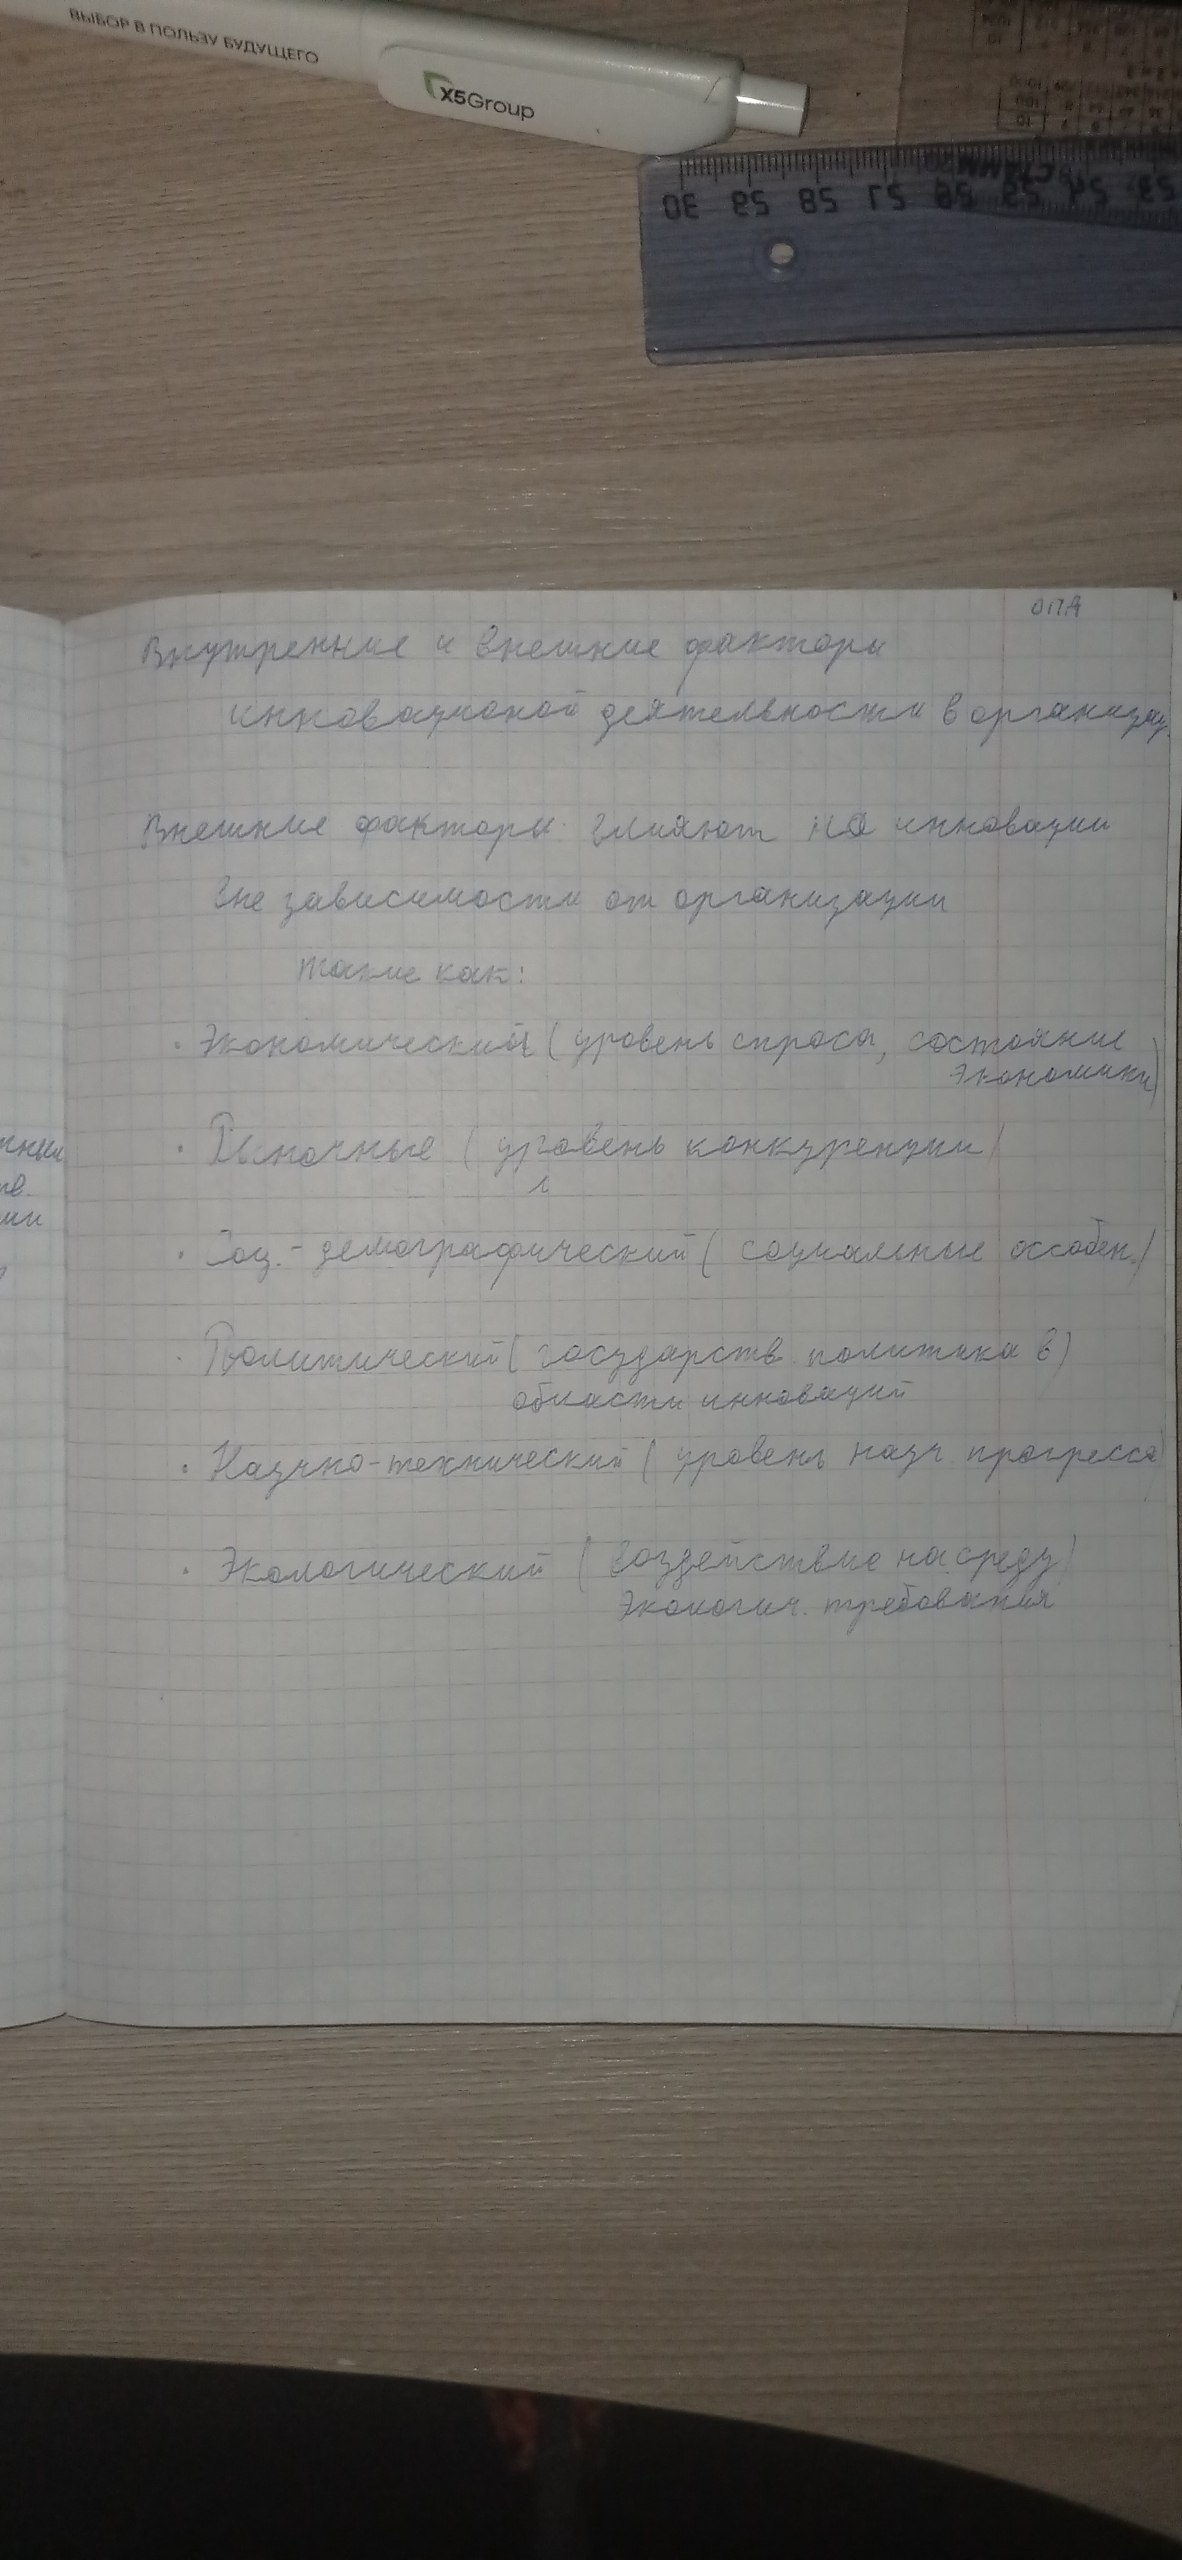 ВЫБОР В ПОЛЬЗУ БУДУЩЕГО
X5Group
30 29 28 27 26 25 24 23
ОПД
Внутренние и внешние факторы
инновационой деятельности в организац.
Внешние факторы влияют на инновации
вне зависимости от организации
такие как:
· Экономический (уровень спроса, состояние
экономики)
· Рыночные (уровень конкуренции)
· Соц. - демографический (социальные оссобен.)
· Политический (государств политика в)
области инноваций
· Научно-технический (уровень науч прогресса)
· Экологический (воздействие на среду)
экологич. требования